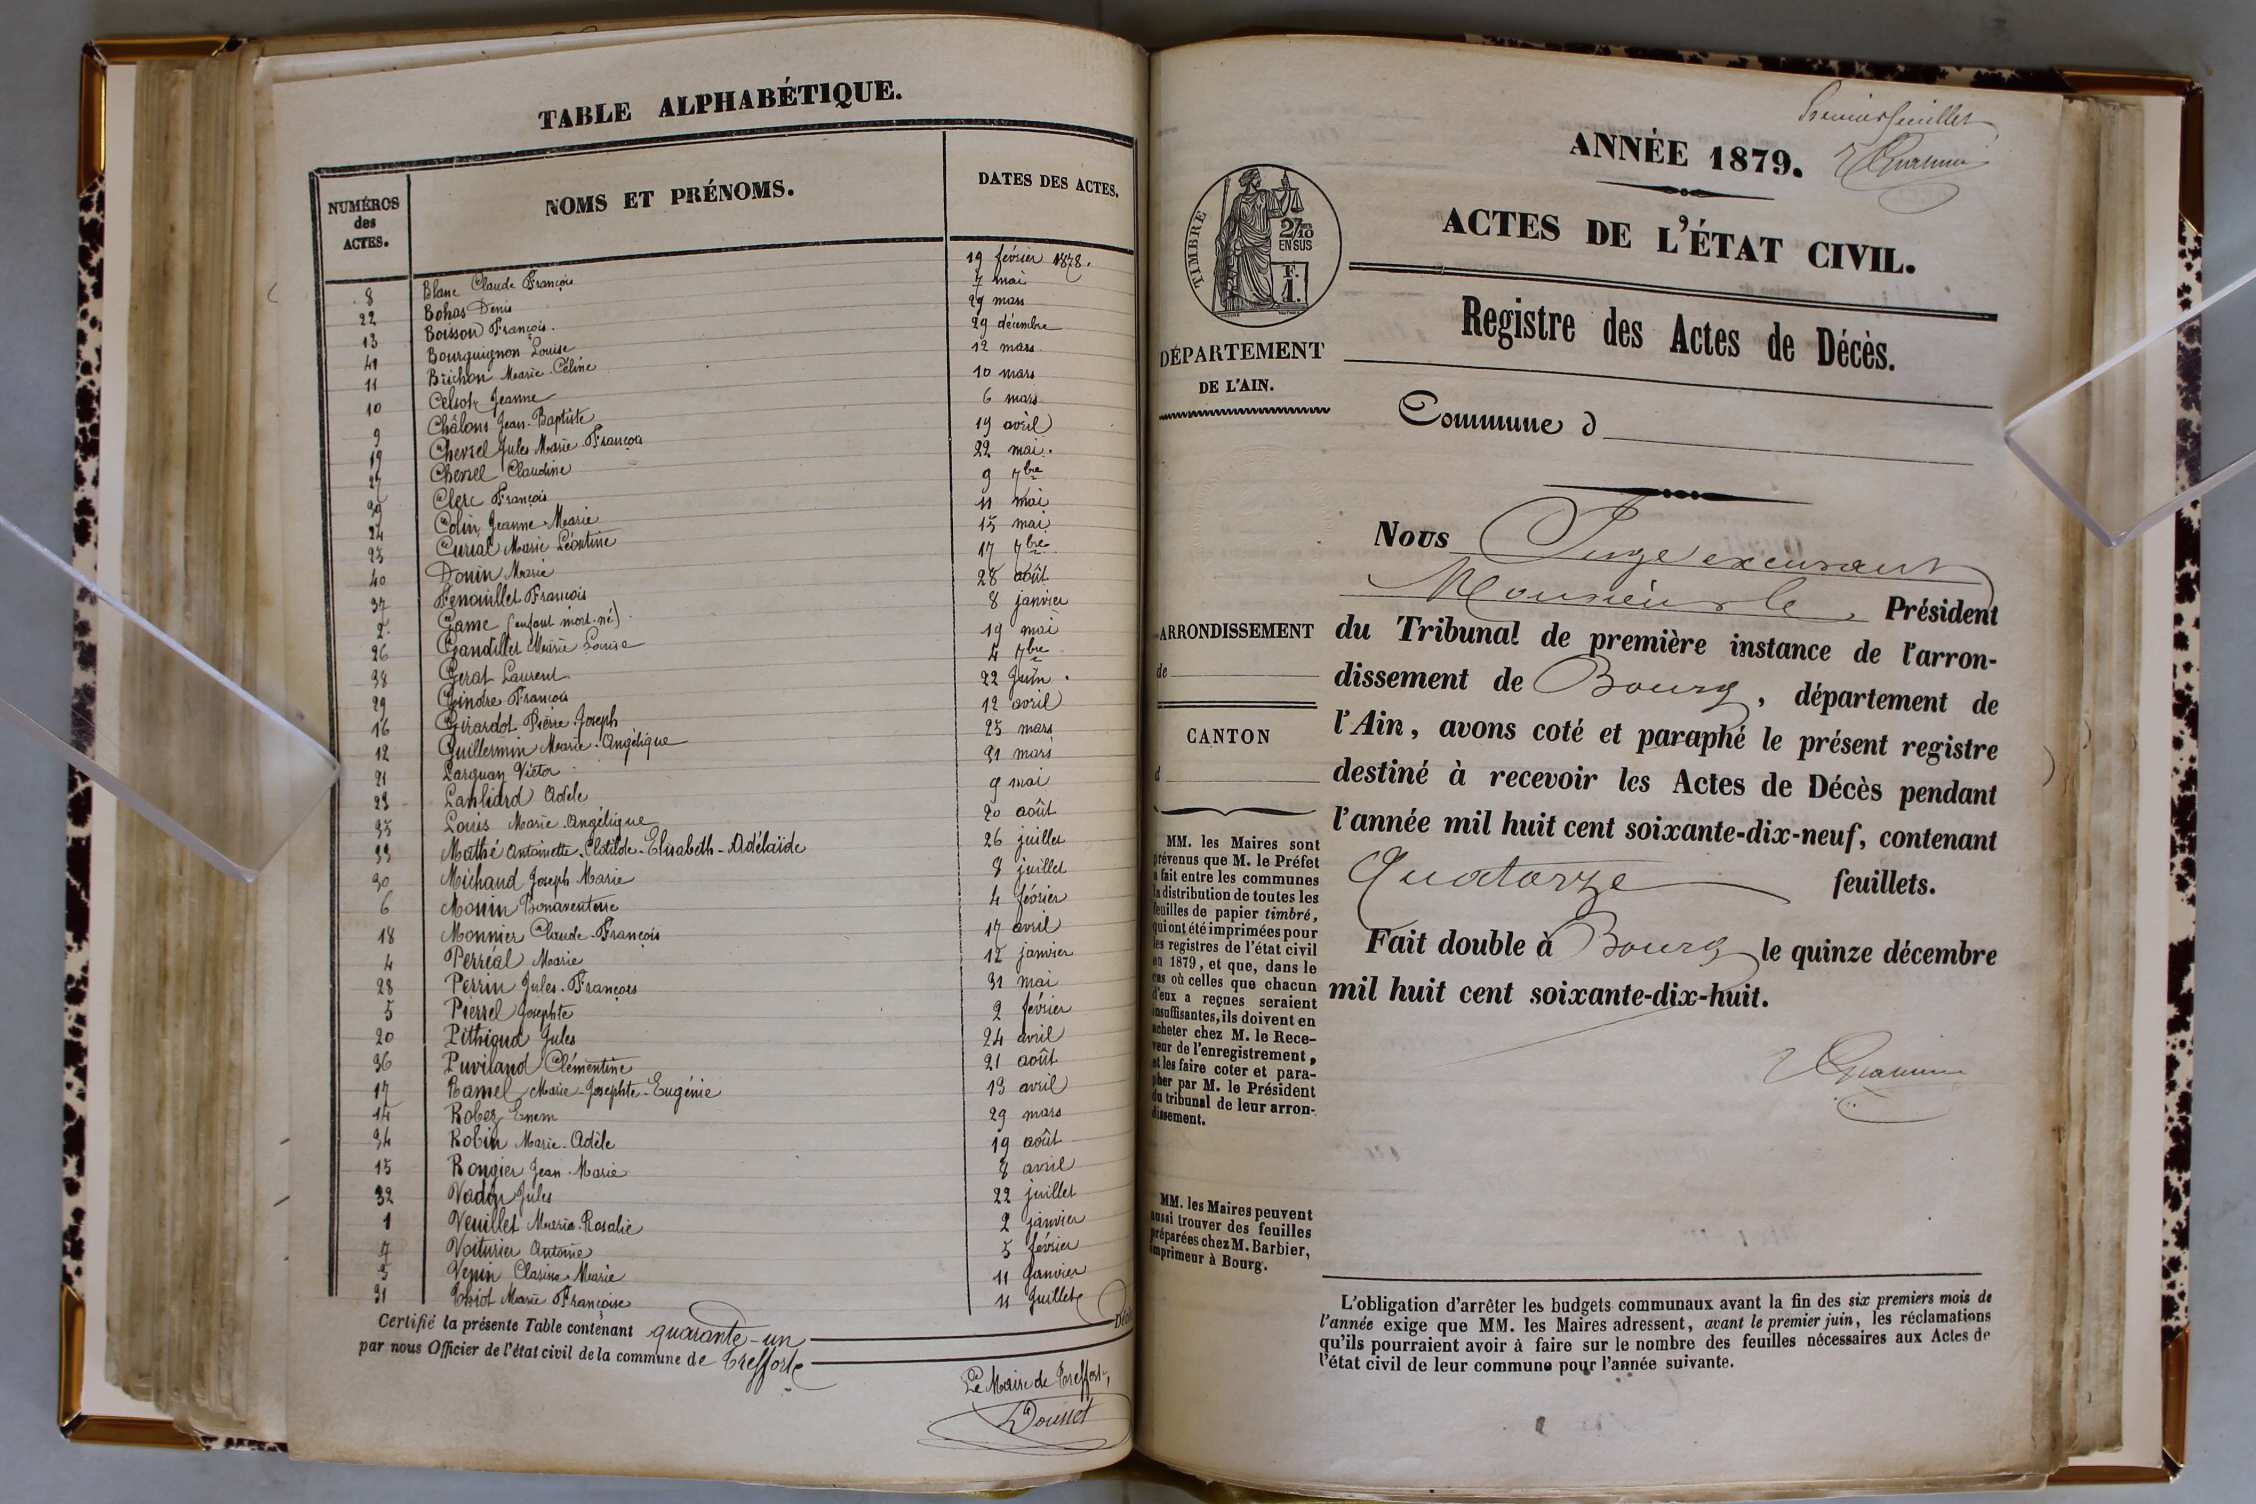 TABLE ALPHABÉTIQUE.
NUMÉROS des ACTES.
NOMS ET PRÉNOMS.
DATES DES ACTES.
8 Blanc Claude François 19 février 1878.
22 Bohas Denis 7 mai
13 Boisson François. 29 mars
41 Bourguignon Louise 29 décembre
11 Brichon Marie Céline 12 mars
10 Jeanne 10 mars
9 Châlons Jean-Baptiste 6 mars
19 Chevrel Jules Marie François 19 avril
27 Chevrel Claudine 22 mai.
39 Clerc François 9 7bre
24 Colin Jeanne-Marie 11 mai
25 Curial Marie Léontine 15 mai
40 Donin Marie 17 7bre
37 Fenouillet François 28 août
2 Game (enfant mort-né) 8 janvier
26 Gandillet Marie Louise 19 mai
38 Gerat Laurent 4 7bre
29 Gindre François 22 juin.
16 Girardot Pierre-Joseph 12 avril
12 Guillermin Marie-Angélique 25 mars
21 Victor 31 mars
23 Adèle 9 mai
35 Louis Marie Angélique 20 août
33 Mathé Antoinette-Clotilde-Elisabeth-Adélaïde 26 juillet
30 Michaud Joseph Marie 8 juillet
6 Monin Bonaventure 4 février
18 Monnier Claude-François 17 avril
4 Perréal Marie 12 janvier
28 Perrin Jules-François 31 mai
5 Pierrel Josephte 2 février
20 Pithioud Jules 24 avril
36 Puviland Clémentine 21 août
17 Ramel Marie-Josephte-Eugénie 13 avril
14 Robez Enem 29 mars
34 Robin Marie-Adèle 19 août
15 Rongier Jean-Marie 8 avril
32 Vadon Jules 22 juillet
1 Veuillet Marie-Rosalie 2 janvier
7 Voiturier Antoine 5 février
3 Clarisse Marie 11 janvier
31 Marie Françoise 11 juillet
Certifié la présente Table contenant quarante-un Décès
par nous Officier de l'état civil de la commune de Treffort
Le Maire de Treffort,
Dousset
Premier feuillet
ANNÉE 1879.
ACTES DE L'ÉTAT CIVIL.
TIMBRE
2/10
EN SUS
F.
1.
Registre des Actes de Décès.
DÉPARTEMENT
DE L'AIN.
Commune d
Nous Juge excusant
Monsieur le Président
ARRONDISSEMENT
de
CANTON
d
du Tribunal de première instance de l'arron-
dissement de Bourg, département de
l'Ain, avons coté et paraphé le présent registre
destiné à recevoir les Actes de Décès pendant
l'année mil huit cent soixante-dix-neuf, contenant
Quatorze feuillets.
Fait double à Bourg le quinze décembre
mil huit cent soixante-dix-huit.
MM. les Maires sont
prévenus que M. le Préfet
a fait entre les communes
la distribution de toutes les
feuilles de papier timbré,
qui ont été imprimées pour
les registres de l'état civil
en 1879, et que, dans le
cas où celles que chacun
d'eux a reçues seraient
insuffisantes, ils doivent en
acheter chez M. le Rece-
veur de l'enregistrement,
et les faire coter et para-
pher par M. le Président
du tribunal de leur arron-
dissement.
MM. les Maires peuvent
aussi trouver des feuilles
préparées chez M. Barbier,
imprimeur à Bourg.
L'obligation d'arrêter les budgets communaux avant la fin des six premiers mois de
l'année exige que MM. les Maires adressent, avant le premier juin, les réclamations
qu'ils pourraient avoir à faire sur le nombre des feuilles nécessaires aux Actes de
l'état civil de leur commune pour l'année suivante.